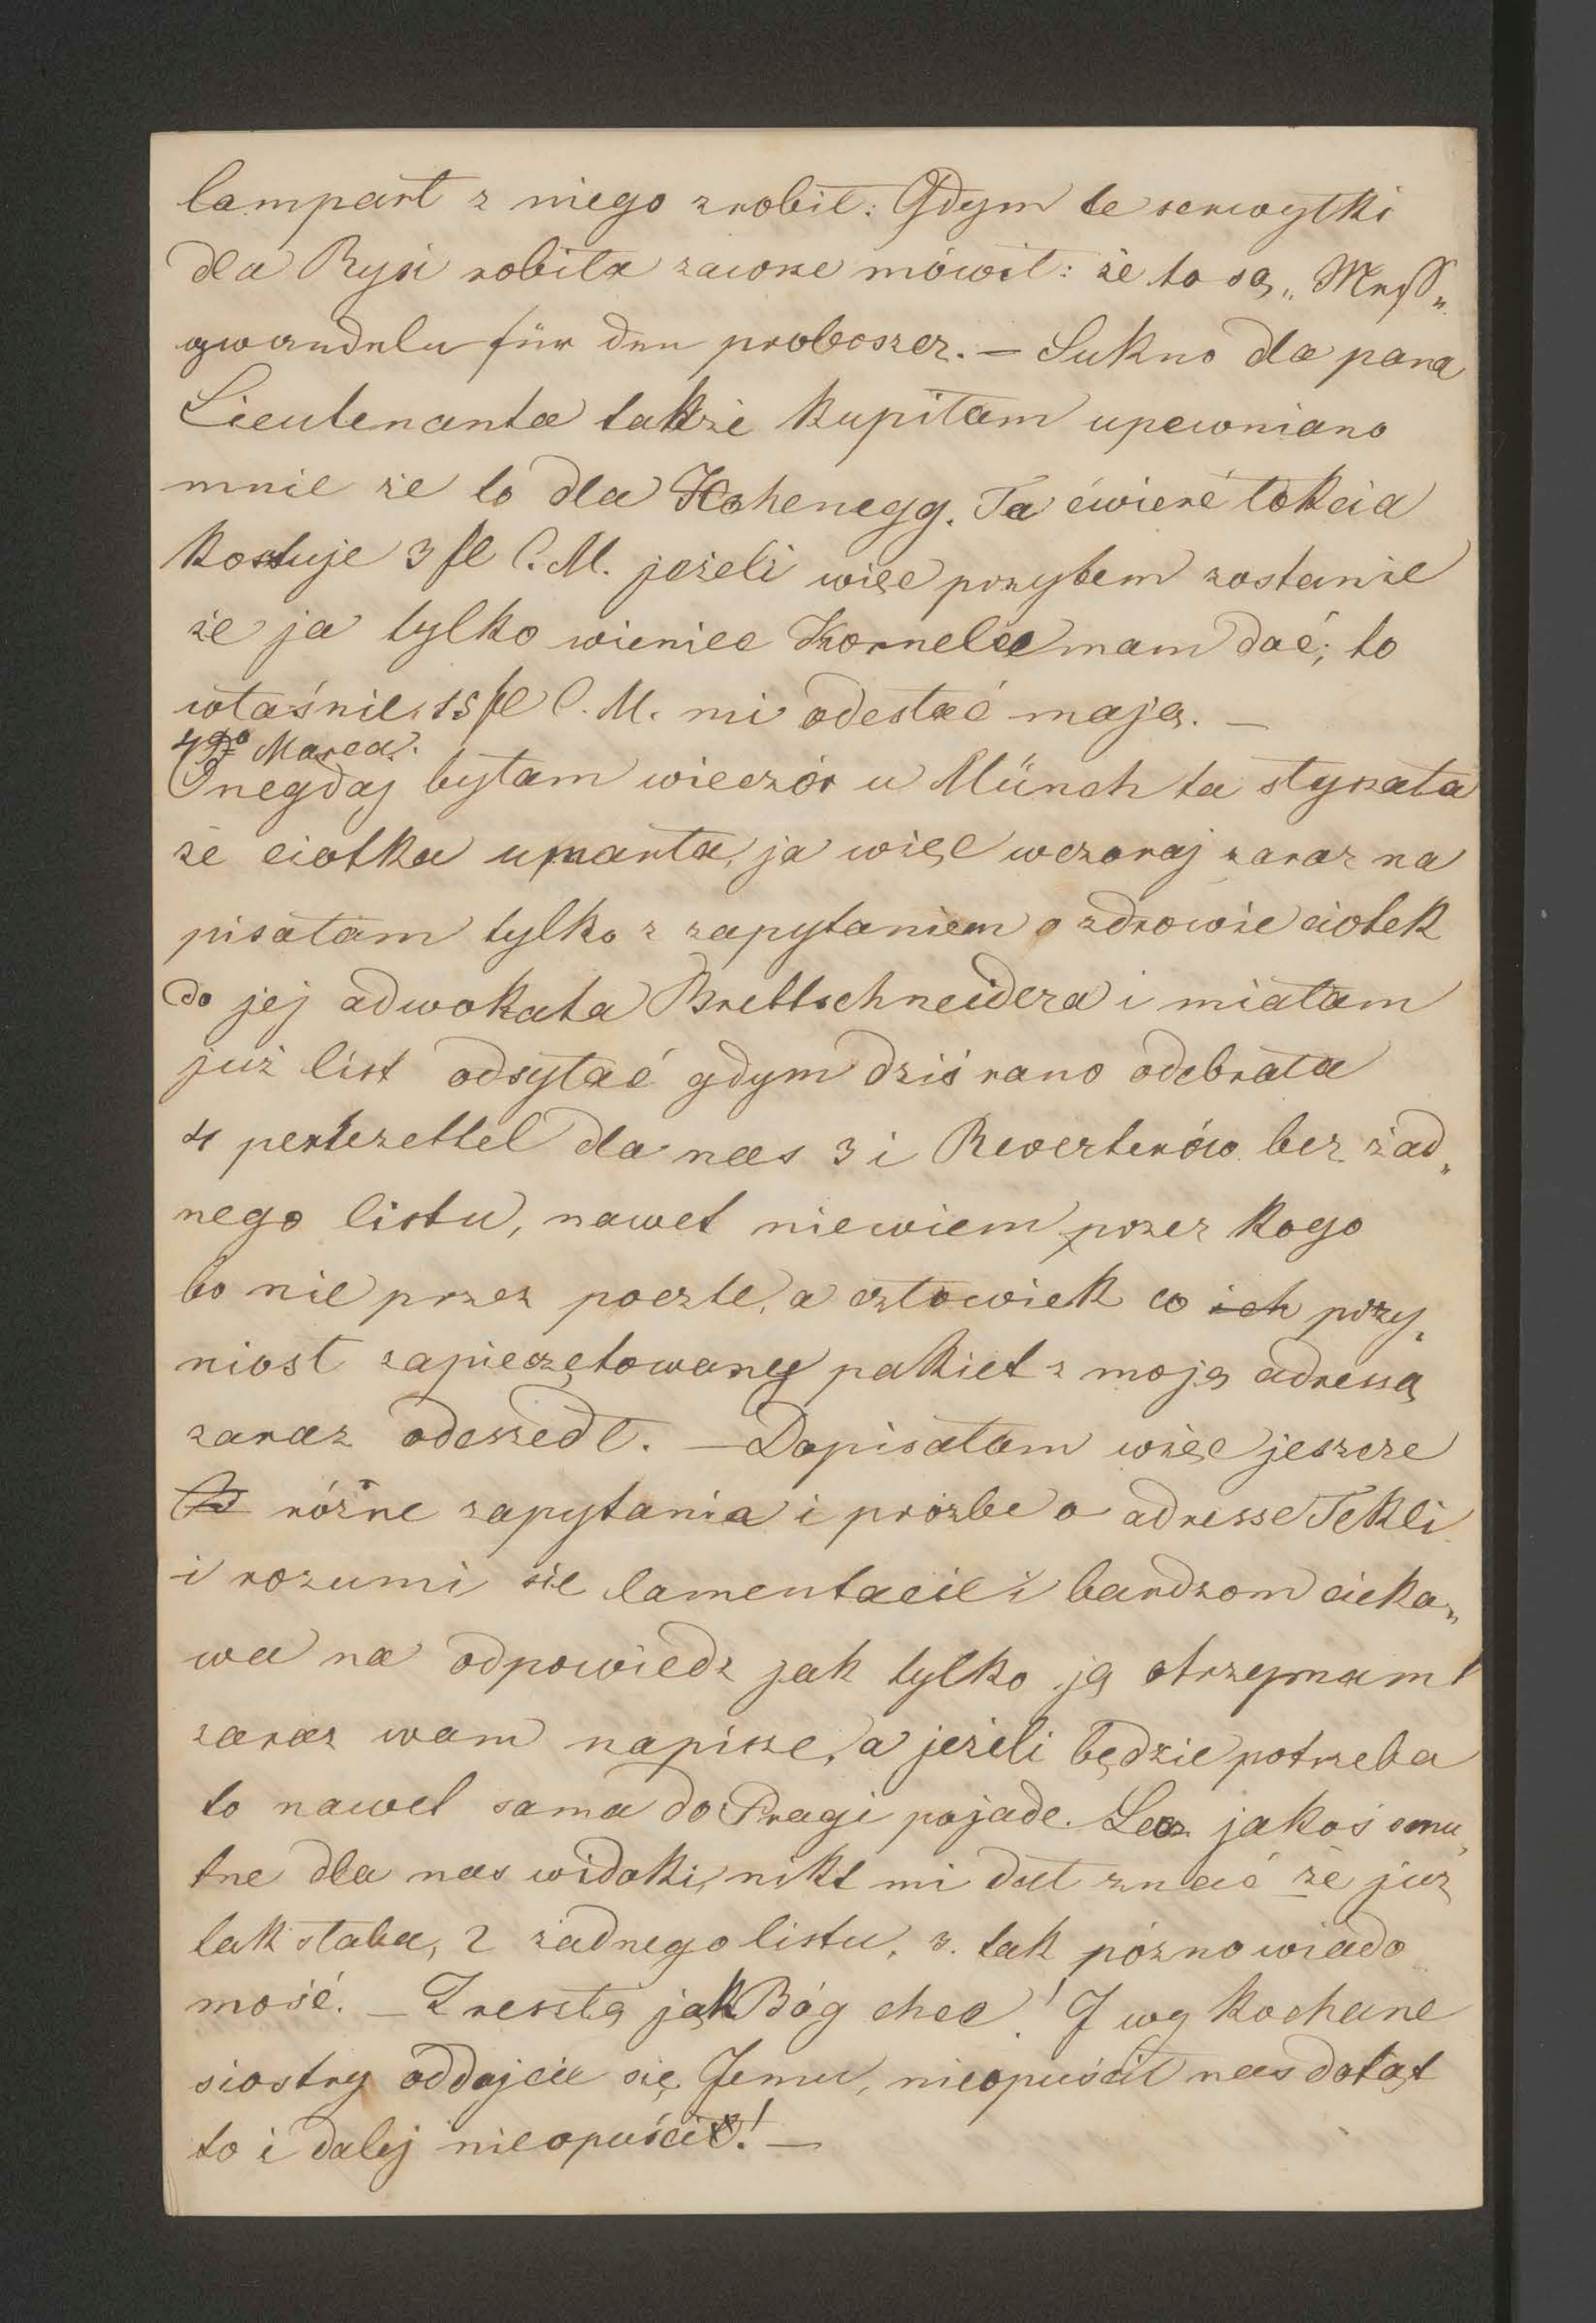 lampart z niego zrobił. Gdym te serwytki
dla Rysi robiła zawsze mówił: że to są „Meß„
gwandeln für den proboszcz. — Sukno dla pana
Lieutenanta także kupiłam upewniano
mnie że to dla Hohenegg. Ta ćwierć łokcia
kostuje 3 fl C.M. jeżeli więc przytem zostanie
że ja tylko wieniec Kornelce mam dać; to
właśnie 15 fl C.M. mi odesłać mają. —
4go Marca.
Onegdaj byłam wieczór u Münch ta słyszała
że ciotka umarła, ja więc wczoraj zaraz na
pisałam tylko z zapytaniem o zdrowie ciotek
do jej adwokata Brettschneidera i miałam
już list odsyłać gdym dziś rano odebrała
4 partezettel dla nas 3 i Reverterów bez żad„
nego listu, nawet niewiem przez kogo
bo nie przez pocztę, a człowiek co ich przy„
niosł zapieczętowany pakiet z moją adressą
zaraz odeszedł. — Dopisałam więc jeszcze
różne zapytania i prózbe o adresse Tekli
i rozumi się lamentacie i bardzom cieka„
wa na odpowiedz jak tylko ją otrzymam
zaraz wam napisze, a jeżeli będzie potrzeba
to nawet sama do Pragi pojade. Lecz jakoś smu„
tne dla nas widoki, nikt mi dał znać że już
tak słaba, 2 żadnego listu, 3. tak pózno wiado
mość. — Zresztą jak Bóg chce! I wy kochane
siostry oddajcie się Jemu, nieopuścił nas dotąt
to i dalej nieopuści! —